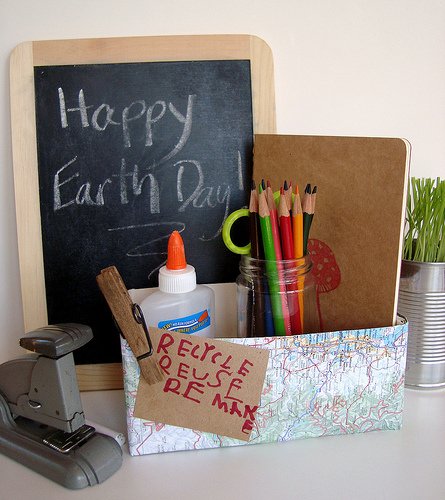 Happy
Earth Day!
RECYCLE
REUSE
REMAKE